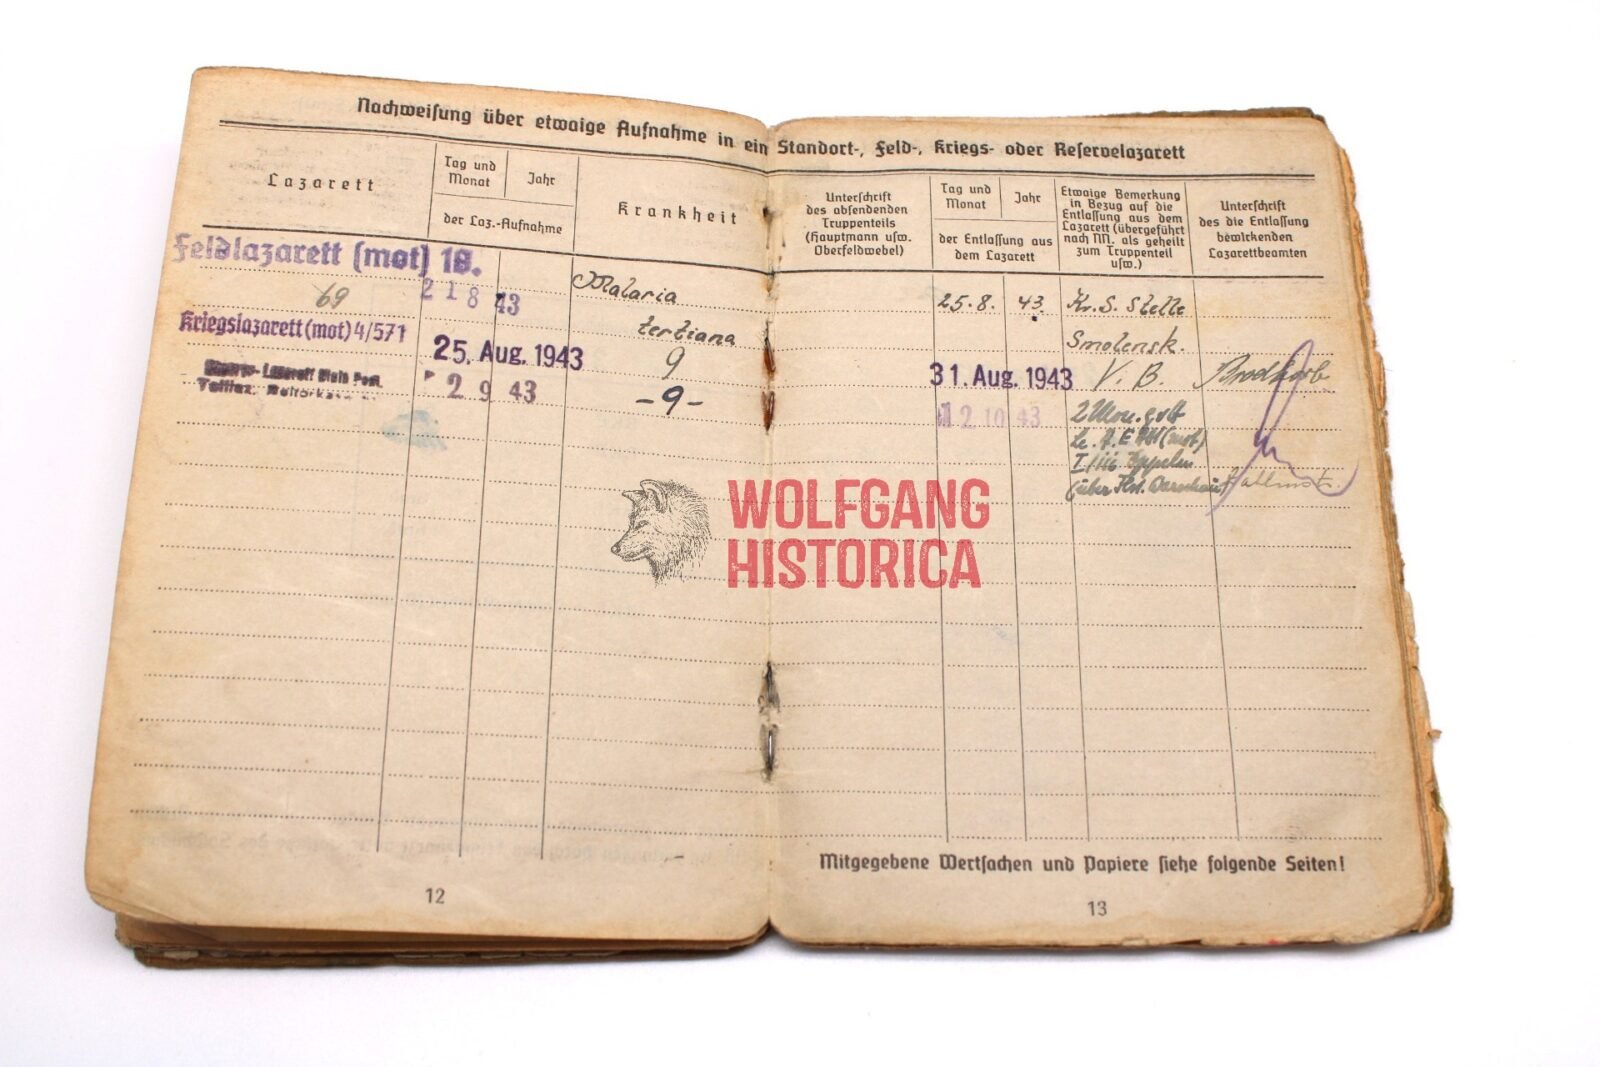 Nachweisung über etwaige Aufnahme in ein Standort-, Feld-, Kriegs- oder Reservelazarett
Lazarett
Tag und Monat
Jahr
der Laz.-Aufnahme
Krankheit
Feldlazarett (mot) 18.
69
21 8 43
Malaria
tertiana
Kriegslazarett (mot) 4/571
25. Aug. 1943
9
2 9 43
-9-
12
Unterschrift
des absendenden
Truppenteils
(Hauptmann usw.
Oberfeldwebel)
Tag und
Monat
Jahr
der Entlassung aus
dem Lazarett
Etwaige Bemerkung
in Bezug auf die
Entlassung aus dem
Lazarett (übergeführt
nach NN. als geheilt
zum Truppenteil
usw.)
Unterschrift
des die Entlassung
bewirkenden
Lazarettbeamten
25.8. 43. Kr. S. Stelle
Smolensk.
31. Aug. 1943 V. B.
12 10 43
WOLFGANG
HISTORICA
Mitgegebene Wertsachen und Papiere siehe folgende Seiten!
13